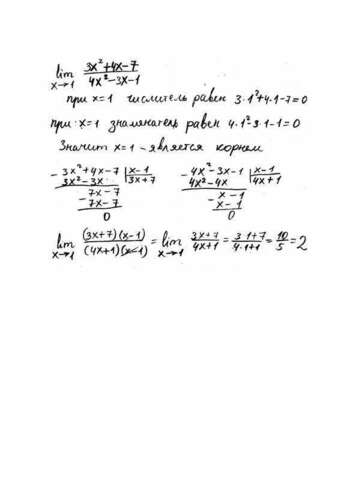 lim x→1 (3x²+4x-7)/(4x²-3x-1)
при x=1 числитель равен 3·1²+4·1-7=0
при x=1 знаменатель равен 4·1²-3·1-1=0
Значит x=1 - является корнем
- 3x²+4x-7 | x-1
3x²-3x | 3x+7
- 7x-7
7x-7
0
- 4x²-3x-1 | x-1
4x²-4x | 4x+1
- x-1
x-1
0
lim x→1 (3x+7)(x-1)/(4x+1)(x-1) = lim x→1 (3x+7)/(4x+1) = (3·1+7)/(4·1+1) = 10/5 = 2